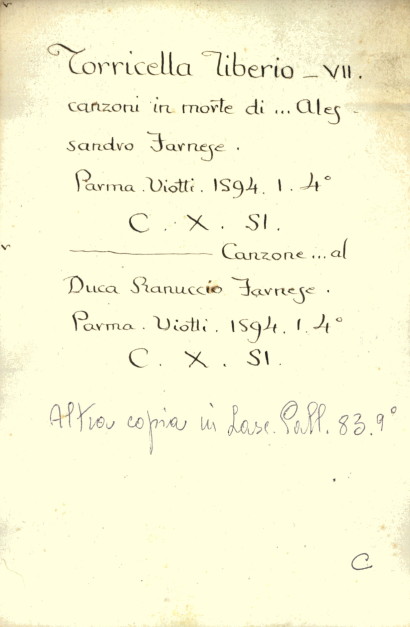 Torricella Tiberio – VII.
canzoni in morte di ... Ales-
sandro Farnese.
Parma. Viotti. 1594. 1. 4°
C. X. SI.
——— Canzone ... al
Duca Ranuccio Farnese.
Parma. Viotti. 1594. 1. 4°
C. X. SI.
Altra copia in Lasc. Pall. 83. 9°
C